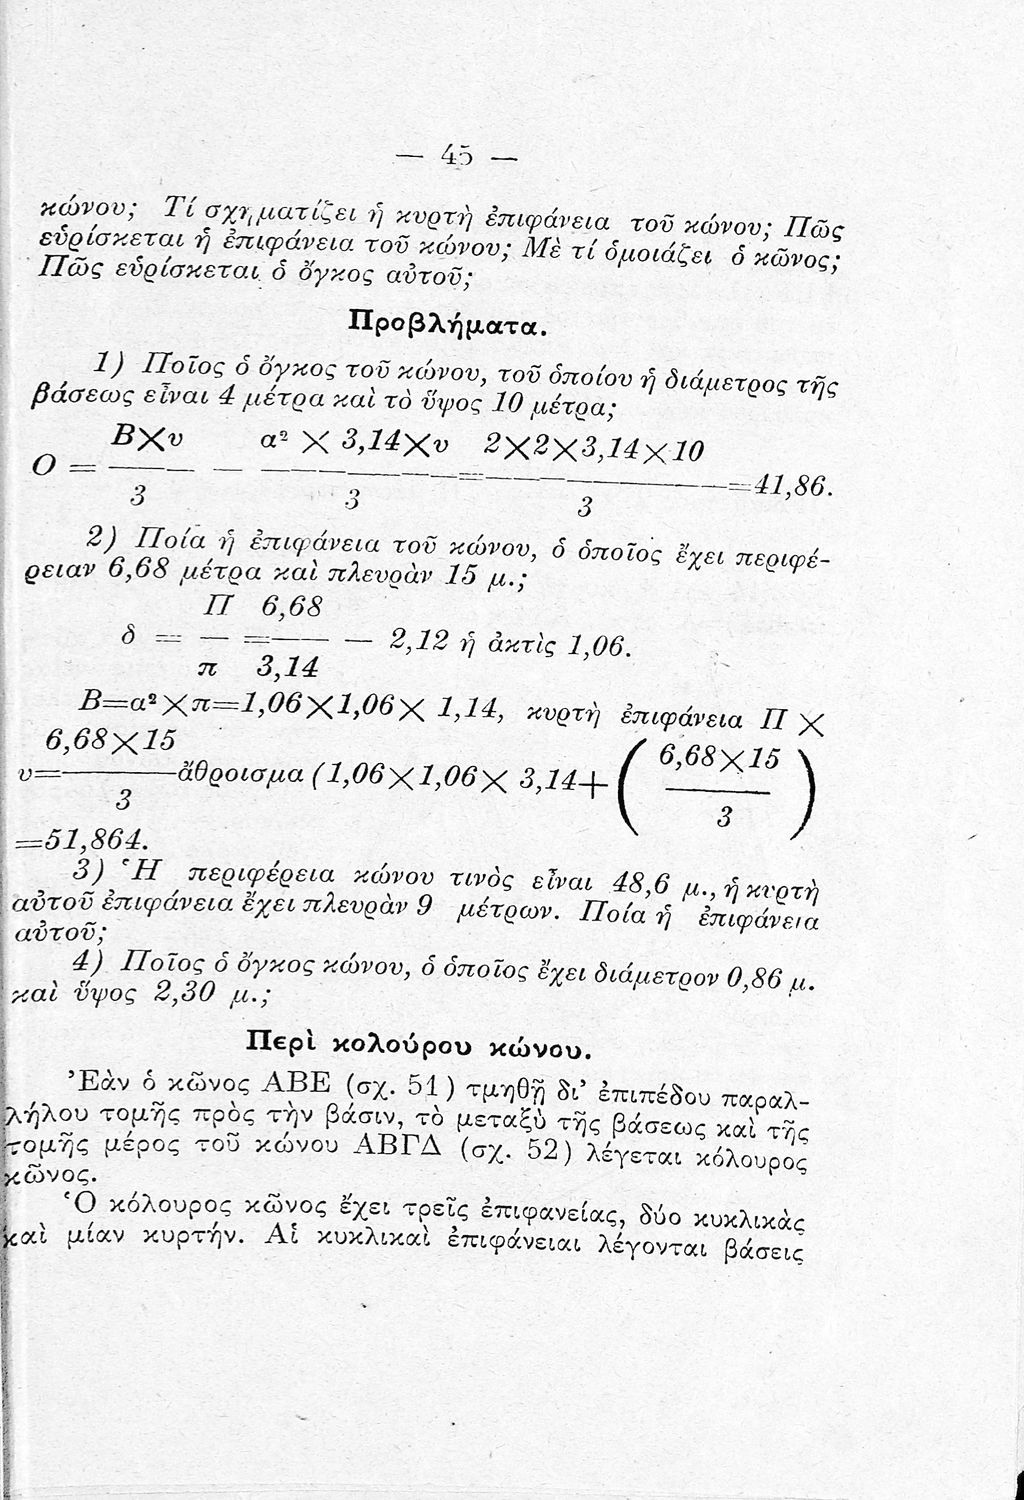 — 45 —
κώνου; Τί σχηματίζει ἡ κυρτὴ ἐπιφάνεια τοῦ κώνου; Πῶς
εὑρίσκεται ἡ ἐπιφάνεια τοῦ κώνου; Μὲ τί ὁμοιάζει ὁ κῶνος;
Πῶς εὑρίσκεται ὁ ὄγκος αὐτοῦ;
Προβλήματα.
1) Ποῖος ὁ ὄγκος τοῦ κώνου, τοῦ ὁποίου ἡ διάμετρος τῆς
βάσεως εἶναι 4 μέτρα καὶ τὸ ὕψος 10 μέτρα;
Β×υ α² × 3,14×υ 2×2×3,14×10
Ο = ——— — ————————=————————=41,86.
3 3 3
2) Ποία ἡ ἐπιφάνεια τοῦ κώνου, ὁ ὁποῖος ἔχει περιφέ-
ρειαν 6,68 μέτρα καὶ πλευρὰν 15 μ.;
Π 6,68
δ = — =——— — 2,12 ἡ ἀκτὶς 1,06.
π 3,14
Β=α²×π=1,06×1,06× 1,14, κυρτὴ ἐπιφάνεια Π ×
6,68×15 6,68×15
υ=————ἄθροισμα (1,06×1,06× 3,14+ ( ———— )
3 3
=51,864.
3) Ἡ περιφέρεια κώνου τινὸς εἶναι 48,6 μ., ἡ κυρτὴ
αὐτοῦ ἐπιφάνεια ἔχει πλευρὰν 9 μέτρων. Ποία ἡ ἐπιφάνεια
αὐτοῦ;
4) Ποῖος ὁ ὄγκος κώνου, ὁ ὁποῖος ἔχει διάμετρον 0,86 μ.
καὶ ὕψος 2,30 μ.;
Περὶ κολούρου κώνου.
Ἐὰν ὁ κῶνος ΑΒΕ (σχ. 51) τμηθῇ δι’ ἐπιπέδου παραλ-
λήλου τομῆς πρὸς τὴν βάσιν, τὸ μεταξὺ τῆς βάσεως καὶ τῆς
τομῆς μέρος τοῦ κώνου ΑΒΓΔ (σχ. 52) λέγεται κόλουρος
κῶνος.
Ὁ κόλουρος κῶνος ἔχει τρεῖς ἐπιφανείας, δύο κυκλικὰς
καὶ μίαν κυρτήν. Αἱ κυκλικαὶ ἐπιφάνειαι λέγονται βάσεις